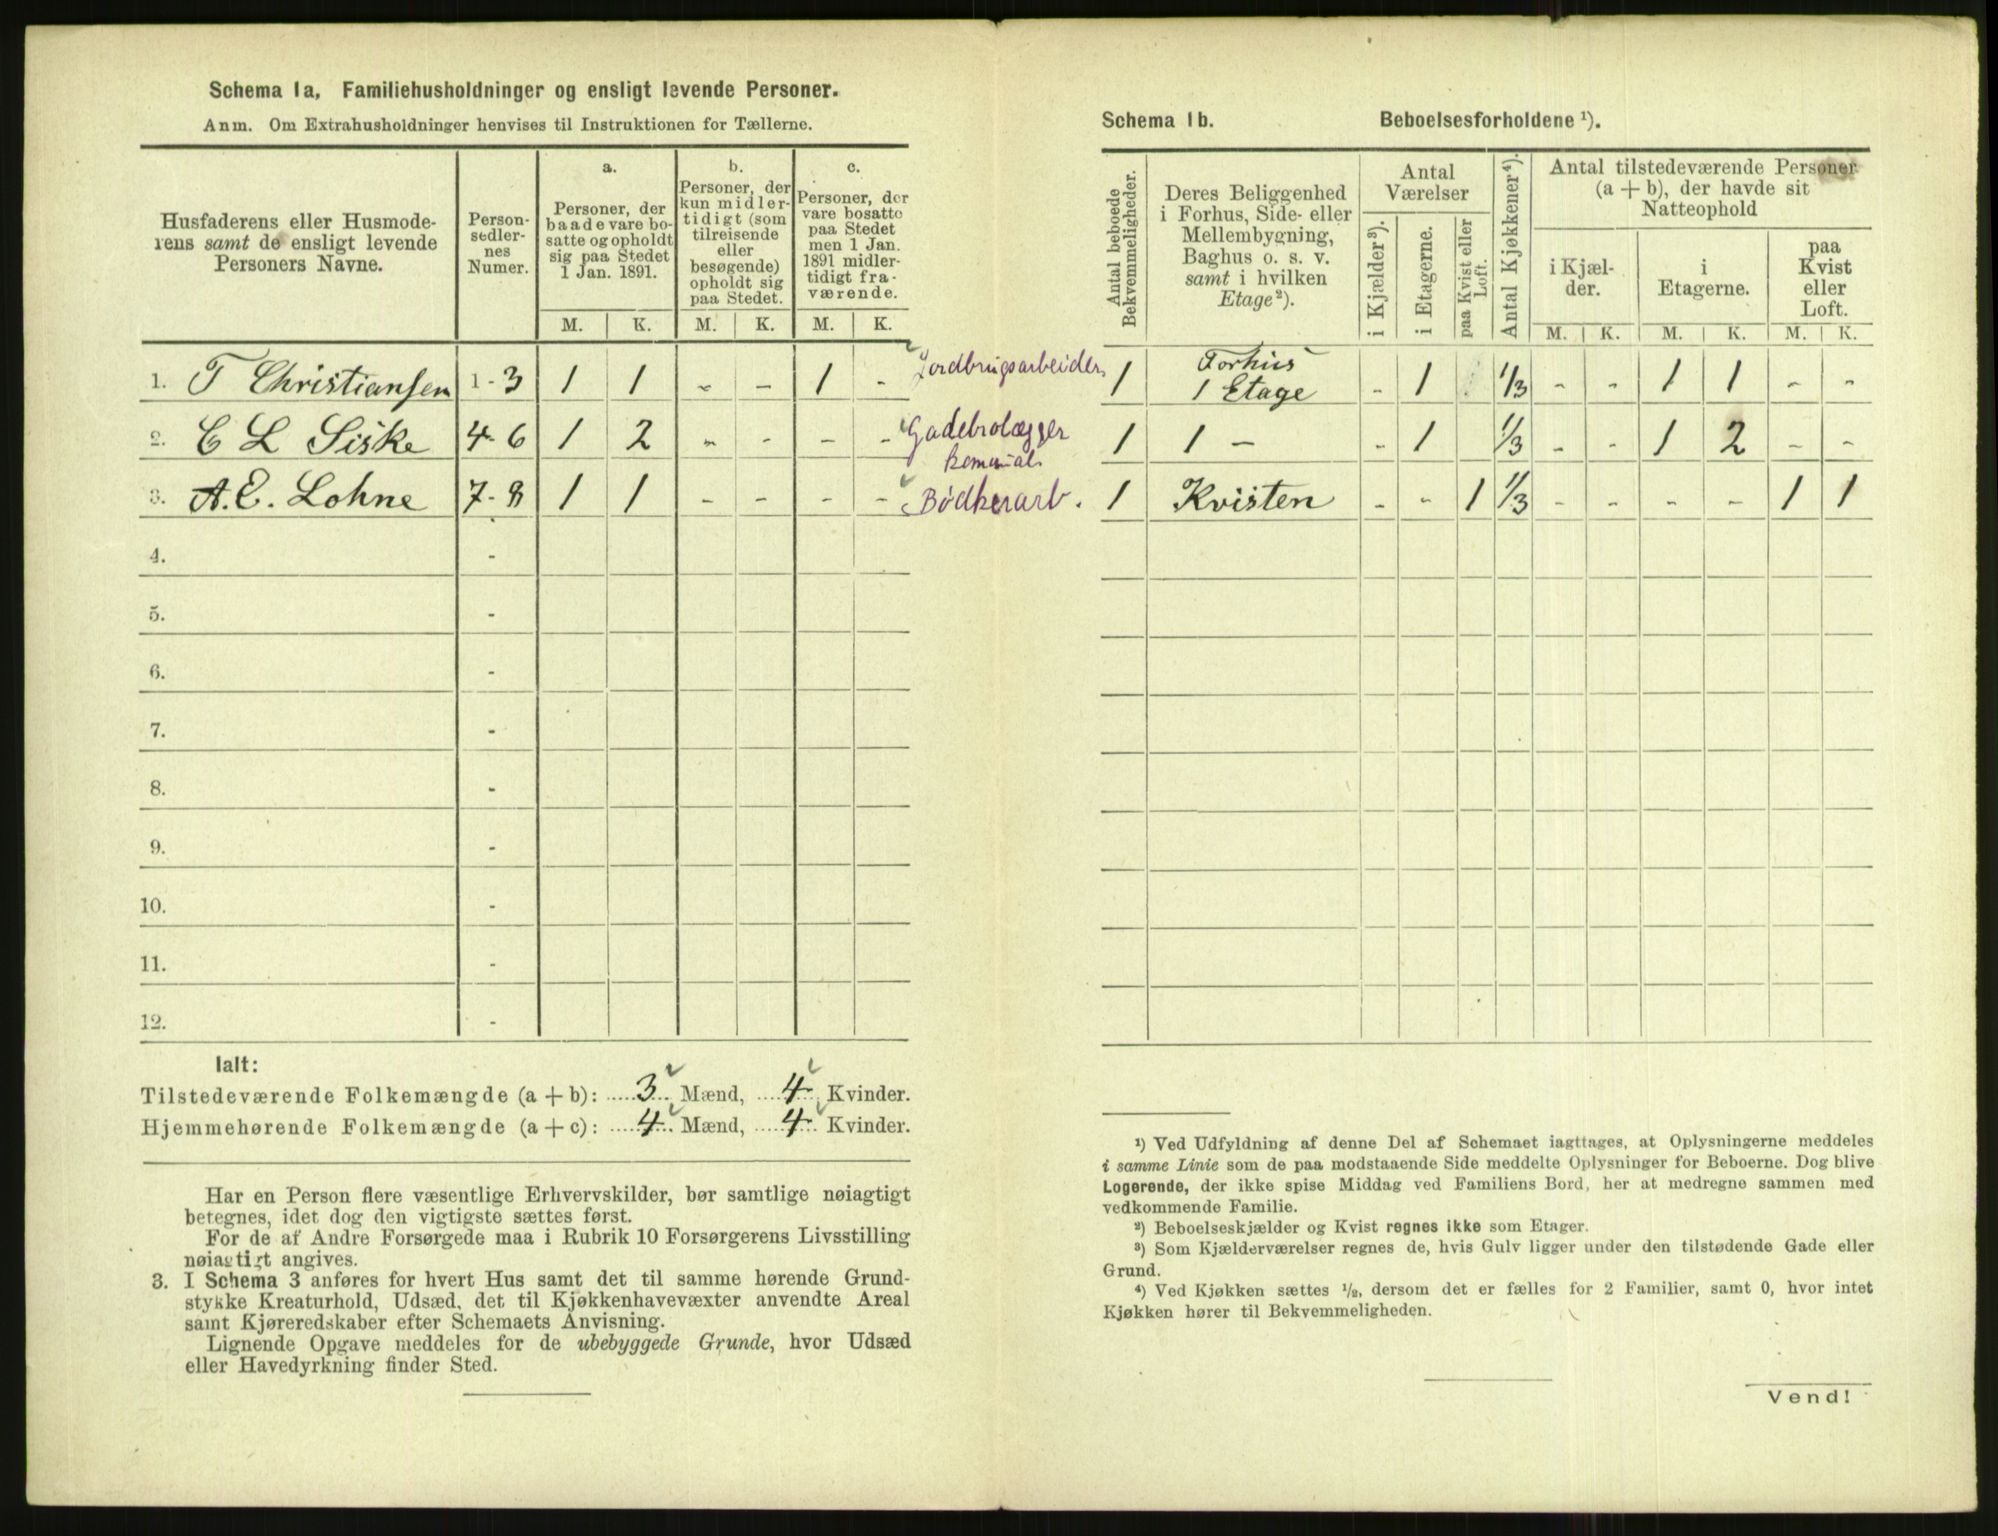 Schema 1a. Familiehusholdninger og ensligt levende Personer.
Anm. Om Extrahusholdninger henvises til Instruktionen for Tællerne.
Husfaderens eller Husmode-
rens samt de ensligt levende
Personers Navne.
Person-
sedler-
nes
Numer.
a.
Personer, der
baade vare bo-
satte og opholdt
sig paa Stedet
1 Jan. 1891.
b.
Personer, der
kun midler-
tidigt (som
tilreisende
eller
besøgende)
opholdt sig
paa Stedet.
c.
Personer, der
vare bosatte
paa Stedet
men 1 Jan.
1891 midler-
tidigt fra-
værende.
M. K. M. K. M. K.
1. T Christiansen 1-3 1 1 - - 1 - Jordbrugsarbeider
2. C L Siske 4-6 1 2 - - - - Gadebrolægger
komunal.
3. A. E. Lohne 7-8 1 1 - - - - Bødkerarb.
4. -
5. -
6. -
7. -
8. -
9. -
10. -
11. -
12. -
Ialt:
Tilstedeværende Folkemængde (a + b): 3 Mænd, 4 Kvinder.
Hjemmehørende Folkemængde (a + c): 4 Mænd, 4 Kvinder.
Har en Person flere væsentlige Erhvervskilder, bør samtlige nøiagtigt
betegnes, idet dog den vigtigste sættes først.
For de af Andre Forsørgede maa i Rubrik 10 Forsørgerens Livsstilling
nøiagtigt angives.
3. I Schema 3 anføres for hvert Hus samt det til samme hørende Grund-
stykke Kreaturhold, Udsæd, det til Kjøkkenhavevæxter anvendte Areal
samt Kjøreredskaber efter Schemaets Anvisning.
Lignende Opgave meddeles for de ubebyggede Grunde, hvor Udsæd
eller Havedyrkning finder Sted.
Schema 1b. Beboelsesforholdene ¹).
Antal beboede
Bekvemmeligheder.
Deres Beliggenhed
i Forhus, Side- eller
Mellembygning,
Baghus o. s. v.
samt i hvilken
Etage²).
Antal
Værelser
i Kjælder³).
i Etagerne.
paa Kvist eller
Loft.
Antal Kjøkkener⁴).
Antal tilstedeværende Personer
(a + b), der havde sit
Natteophold
i Kjæl-
der.
i
Etagerne.
paa
Kvist
eller
Loft.
M. K. M. K. M. K.
1 Forhus
1 Etage - 1 1/3 - - 1 1 - -
1 1 - - 1 1/3 - 1 2 - -
1 Kvisten - - 1 1/3 - - - - 1 1
¹) Ved Udfyldning af denne Del af Schemaet iagttages, at Oplysningerne meddeles
i samme Linie som de paa modstaaende Side meddelte Oplysninger for Beboerne. Dog blive
Logerende, der ikke spise Middag ved Familiens Bord, her at medregne sammen med
vedkommende Familie.
²) Beboelseskjælder og Kvist regnes ikke som Etager.
³) Som Kjælderværelser regnes de, hvis Gulv ligger under den tilstødende Gade eller
Grund.
⁴) Ved Kjøkken sættes ½, dersom det er fælles for 2 Familier, samt 0, hvor intet
Kjøkken hører til Bekvemmeligheden.
Vend!